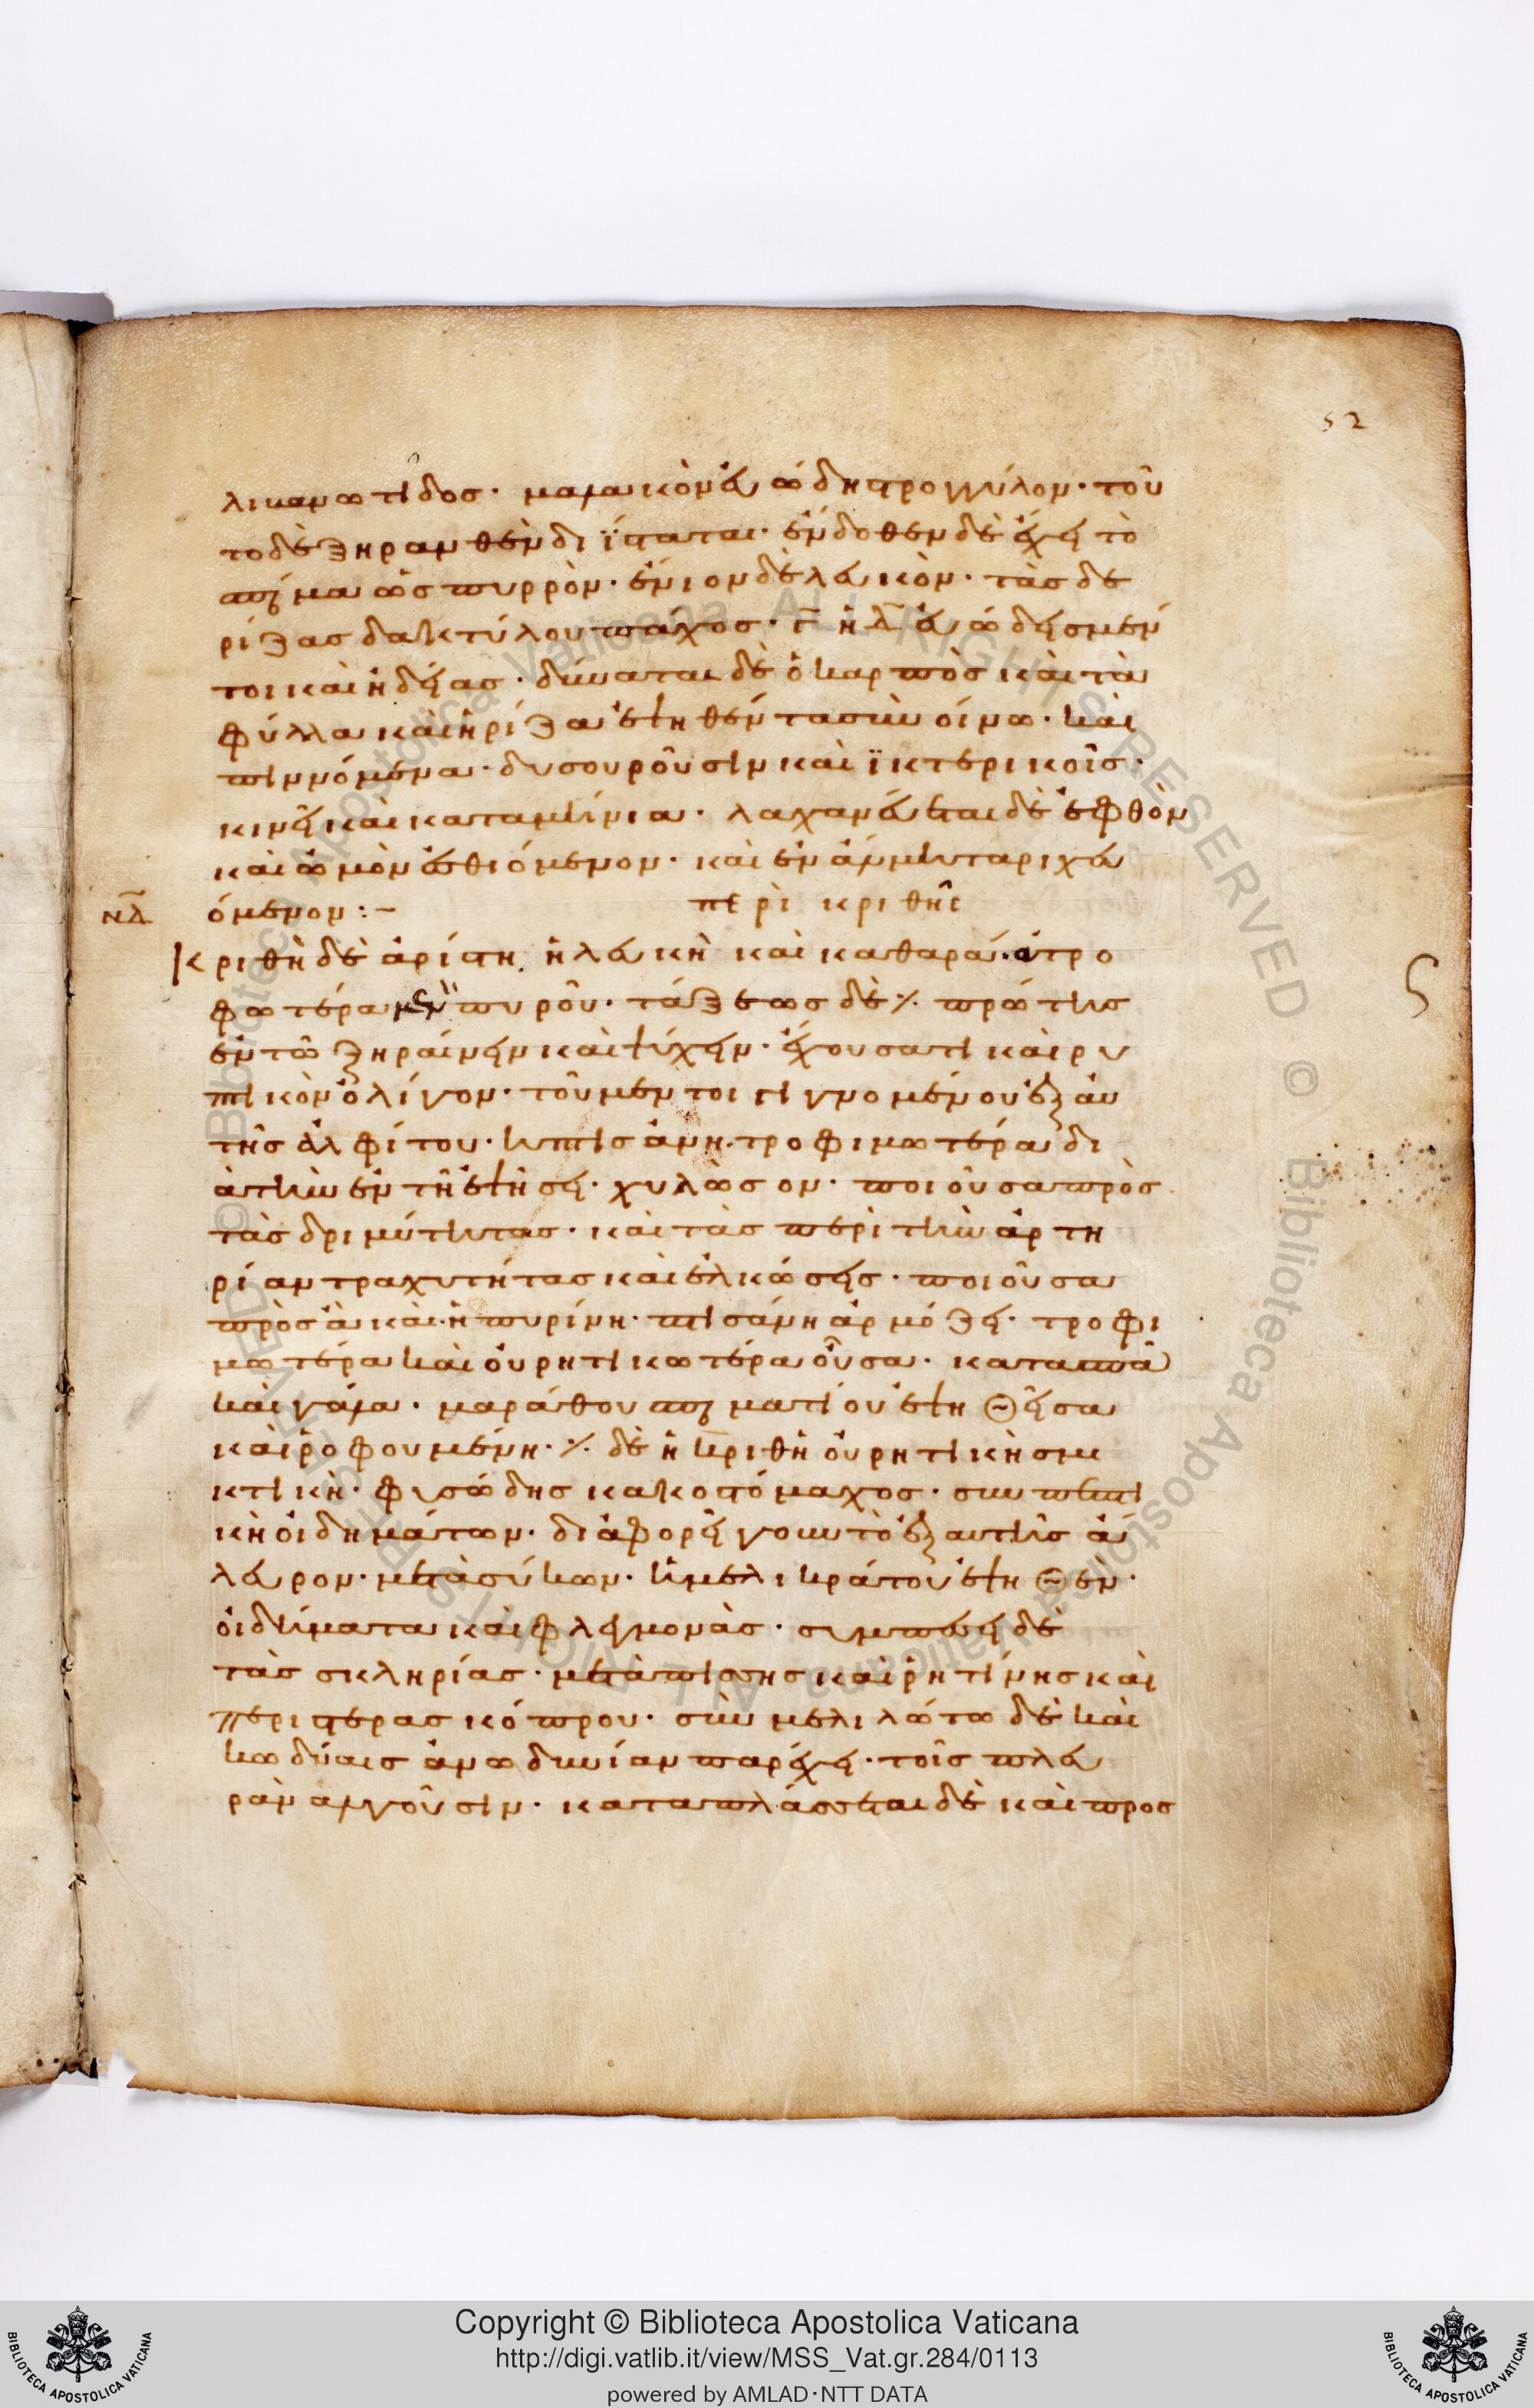 52
λιβανωτίδος· μαλακὸν εὐῶδη στρογγύλον· τοῦ
το δὲ ξηρανθὲν διΐσταται· ἔνδοθεν δὲ ἔχει τὸ
σπέρμα ὡς πυρρὸν· ἔνιον δὲ λευκὸν· τὰς δὲ
ρίζας δακτύλου πάχος· γ̄ ἢ δ̄ εὐώδεις μέν
τοι καὶ ἡδείας· δύναται δὲ ὁ καρπὸς καὶ τὰ
φύλλα καὶ ἡ ρίζα ἑψηθέντα σὺν οἴνω· καὶ
πινόμενα· δυσουροῦσιν καὶ ϊκτερικοῖς·
κινεῖ καὶ καταμήνια· λαχανεύεται δὲ ἑφθὸν
καὶ ὠμὸν ἐσθιόμενον· καὶ ἐν ἅλμη ταριχευ
όμενον :– περὶ κριθῆς
νδ
Κριθὴ δὲ ἀρίστη ἡ λευκὴ καὶ καθαρά· ἀτρο
φωτέρα μὲν πυροῦ· τάξεως δὲ ⁒ πρώτης
ἐν τῶ ξηραίνειν καὶ ψύχειν· ἔχουσα τι καὶ ρυ
πτικὸν ὀλίγον· τοῦ μέντοι γιγνομένου ἐξ αυ
τῆς ἀλφίτου· ἡ πτισάνη τροφιμωτέρα δι
ὰ τὴν ἐν τῆ ἑψήσει· χυλὼσον· ποιοῦσα πρὸς
τὰς δριμύτητας· καὶ τὰς περὶ τὴν ἀρτη
ρίαν τραχυτήτας καὶ ἑλκώσεις· ποιοῦσα
πρὸς ἃ καὶ ἡ πυρίνη· πτισάνη ἁρμόζει· τροφι
μωτέρα καὶ οὐρητικωτέρα οὖσα· κατασπᾶ
καὶ γάλα· μαράθου σπερματίου ἑψηθεῖσα
καὶ ροφουμένη· ⁒ δὲ ἡ κριθὴ οὐρητικὴ σμη
κτικὴ· φυσώδης κακοστόμαχος· συμπεπτι
κὴ οἰδημάτων· διαφορεῖ γοῦν τὸ ἐξ αυτῆς ἄ
λευρον· μετὰ σύκων· ἢ μελικράτου ἑψηθὲν·
οἰδήματα καὶ φλεγμονὰς· συμπέσσει δὲ
τὰς σκληρίας· μετὰ πίσσης καὶ ρητίνης καὶ
περιστερᾶς κόπρου· σὺν μελιλώτω δὲ καὶ
κωδύαις ἀνωδυνίαν παρέχει· τοῖς πλευ
ρὰν αλγοῦσιν· καταπλάσσεται δὲ καὶ προς
Copyright © Biblioteca Apostolica Vaticana
http://digi.vatlib.it/view/MSS_Vat.gr.284/0113
powered by AMLAD·NTT DATA
BIBLIOTECA APOSTOLICA VATICANA
BIBLIOTECA APOSTOLICA VATICANA